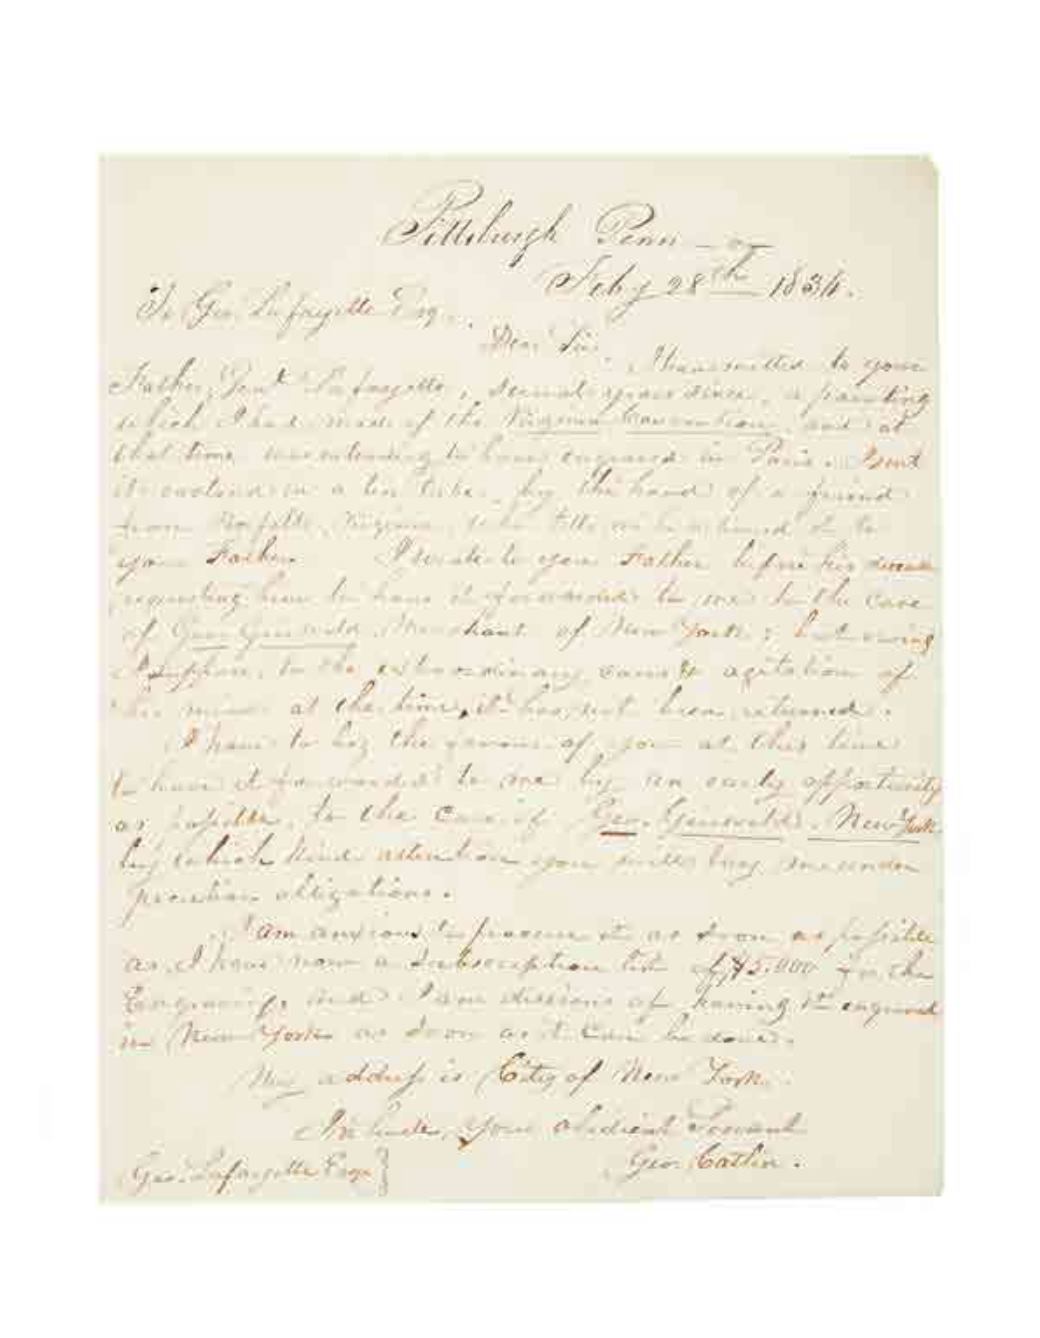 Pittsburgh Penn
Feby 28th 1834.
To Geo. Lafayette Esq.
Dear Sir.
I transmitted to your
Father, Genl. Lafayette, several years since, a painting
which I had made of the Virginia Convention, and at
that time was intending to have engraved in Paris. I sent
it in a tin tube, by the hand of a friend
from Norfolk, Virginia, who tells me he it to
your Father. I wrote to your Father before his
requesting him to have it forwarded to me to the care
of Geo. Griswold Merchant of New York; but owing
I suppose, to the extraordinary cares & agitation of
his mind at the time, it has not been returned.
I have to beg the favour of you at this time
to have it forwarded to me by as early opportunity
as possible, to the care of Geo. Griswold. New York
by which kind attention you will lay me under
peculiar obligations.
I am anxious to procure it as soon as possible
as I have now a subscription list of $5.000 for the
Engraving, and I am desirous of having it engraved
in New York as soon as it can be done.
My address is City of New York.
your obedient Servant
Geo. Catlin.
Geo. Lafayette Esq.